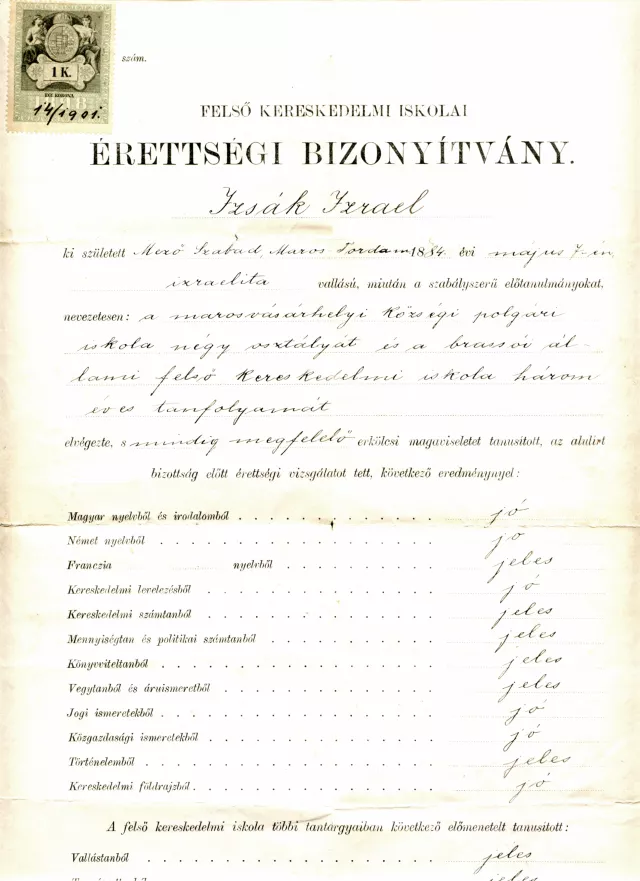 1 K.
EGY KORONA
14/1901.
szám.
FELSŐ KERESKEDELMI ISKOLAI
ÉRETTSÉGI BIZONYÍTVÁNY.
Izsák Izrael
ki született Mező Szabad, Maros Tordam. 1884. évi május 7-én,
izraelita vallású, miután a szabályszerű előtanulmányokat,
nevezetesen: a marosvásárhelyi községi polgári
iskola négy osztályát és a brassói ál-
lami felső kereskedelmi iskola három
éves tanfolyamát
elvégezte, s mindig megfelelő erkölcsi magaviseletet tanusított, az alulirt
bizottság előtt érettségi vizsgálatot tett, következő eredménynyel:
Magyar nyelvből és irodalomból . . . . . . . . . . . . jó
Német nyelvből . . . . . . . . . . . . . . . . . jó
Franczia nyelvből . . . . . . . . . jeles
Kereskedelmi levelezésből . . . . . . . . . . . . . . jó
Kereskedelmi számtanból . . . . . . . . . . . . . . jeles
Mennyiségtan és politikai számtanból . . . . . . . . . . jeles
Könyvviteltanból . . . . . . . . . . . . . . . . . jeles
Vegytanból és áruismeretből . . . . . . . . . . . . . jeles
Jogi ismeretekből . . . . . . . . . . . . . . . . . jó
Közgazdasági ismeretekből . . . . . . . . . . . . . . jó
Történelemből . . . . . . . . . . . . . . . . . . jeles
Kereskedelmi földrajzból . . . . . . . . . . . . . . . jó
A felső kereskedelmi iskola többi tantárgyaiban következő előmenetelt tanusított:
Vallástanból . . . . . . . . . . . . . . . . . . jeles
jeles